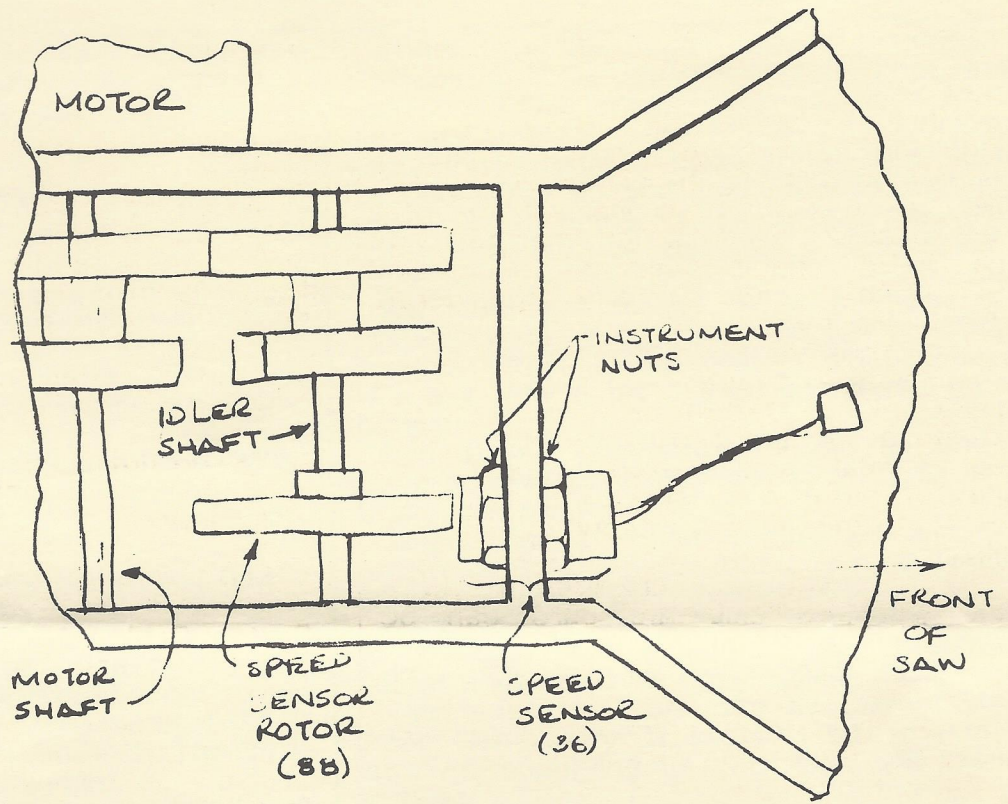 MOTOR
INSTRUMENT
NUTS
IDLER
SHAFT
FRONT
OF
SAW
MOTOR
SHAFT
SPEED
SENSOR
ROTOR
(88)
SPEED
SENSOR
(36)